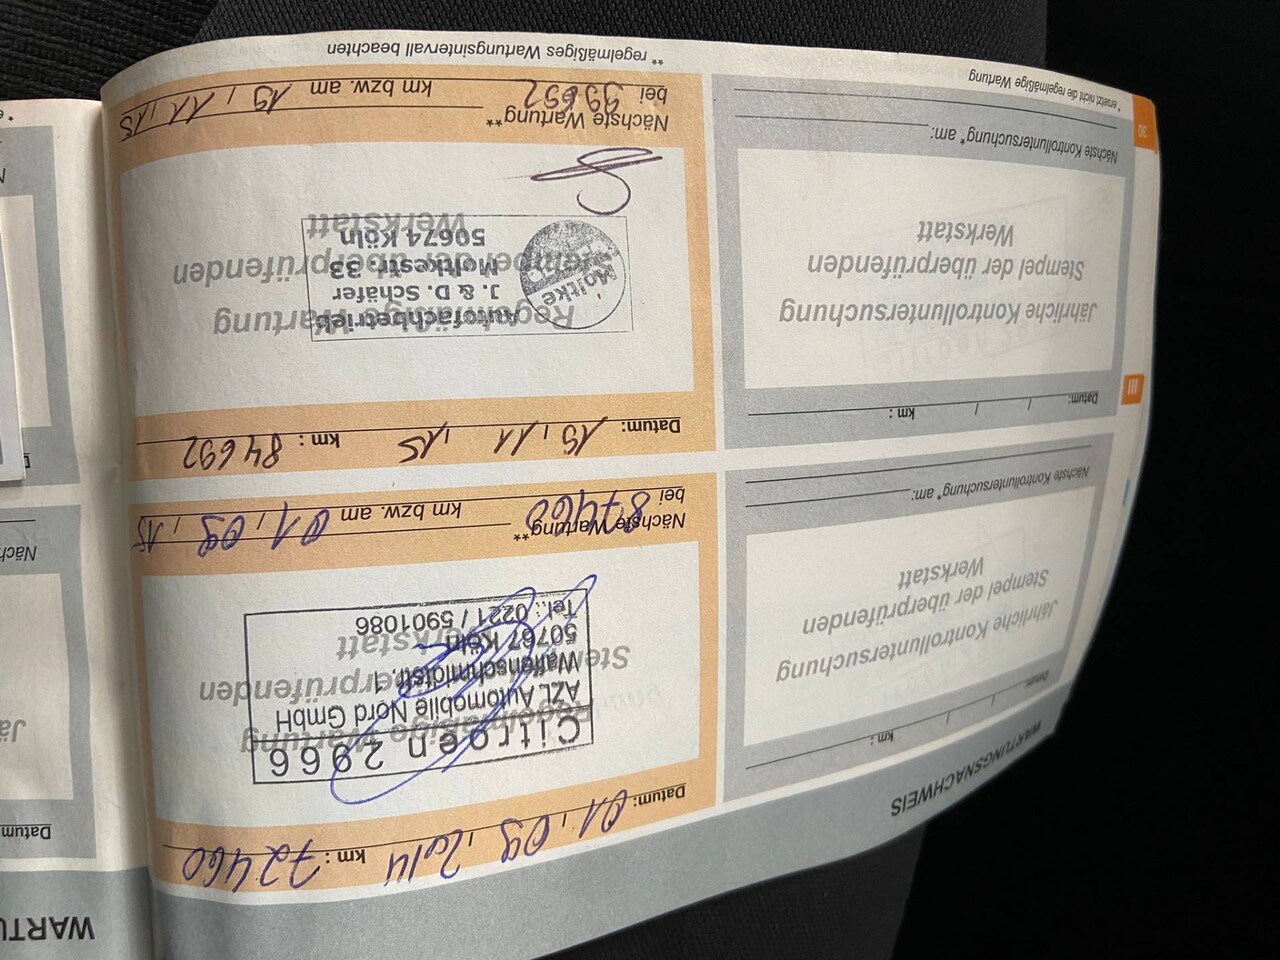 WARTUNGSNACHWEIS
Datum: / / km :
Jährliche Kontrolluntersuchung
Stempel der überprüfenden
Werkstatt
Nächste Kontrolluntersuchung* am:
Datum: / / km :
Jährliche Kontrolluntersuchung
Stempel der überprüfenden
Werkstatt
Nächste Kontrolluntersuchung* am:
* ersetzt nicht die regelmäßige Wartung
III
30
Datum: 01, 09, 2014 km : 72460
Regelmäßige Wartung
Stempel der überprüfenden
Werkstatt
Citroen 2966
AZL Automobile Nord GmbH
Waffenschmidtstr. 1
50767 Köln
Tel.: 0221 / 5901086
Nächste Wartung**
bei 87460 km bzw. am 01, 09, 15
Datum: 19, 11, 15 km : 84692
Regelmäßige Wartung
Stempel der überprüfenden
Werkstatt
Moltke
Autofachbetrieb
J. & D. Schäfer
Moltkestr. 33
50674 Köln
Nächste Wartung**
bei 99692 km bzw. am 19, 11, 15
** regelmäßiges Wartungsintervall beachten
WARTU
Datum
Jä
Näch